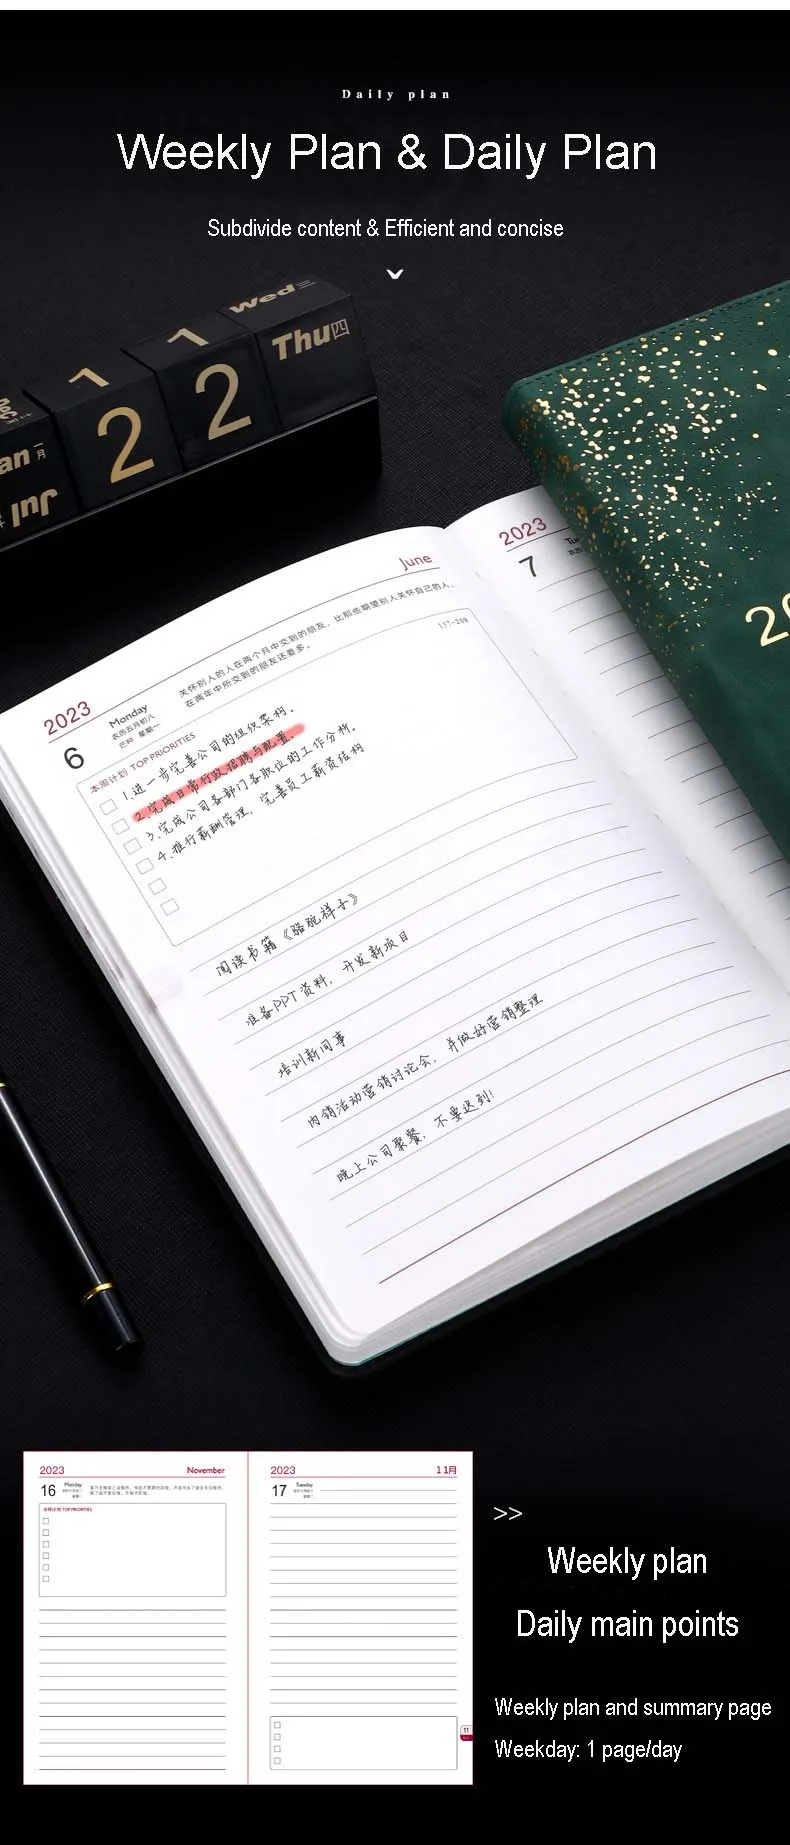 Daily plan
Weekly Plan & Daily Plan
Subdivide content & Efficient and concise
Wed三
1 1
Thu四
22
an 一月
Jul
June
关怀别人的人在两个月中交到的朋友，比那些期望别人关怀自己的人，
在两年中所交到的朋友还要多。
157-208
2023
6
Monday
农历五月初八
芒种 星期一
本周计划 TOP PRIORITIES
1.进一步完善公司的组织架构。
2.完成日常行政招聘与配置。
3.完成公司各部门各职位的工作分析。
4.推行薪酬管理，完善员工薪资结构
阅读书籍《骆驼祥子》
准备PPT资料，开发新项目
培训新同事
内销活动营销讨论会，并做好营销整理
晚上公司聚餐，不要迟到!
2023
7
20
2023 November
16
Monday
本周计划 TOP PRIORITIES
2023 11月
17
Tuesday
11
>>
Weekly plan
Daily main points
Weekly plan and summary page
Weekday: 1 page/day